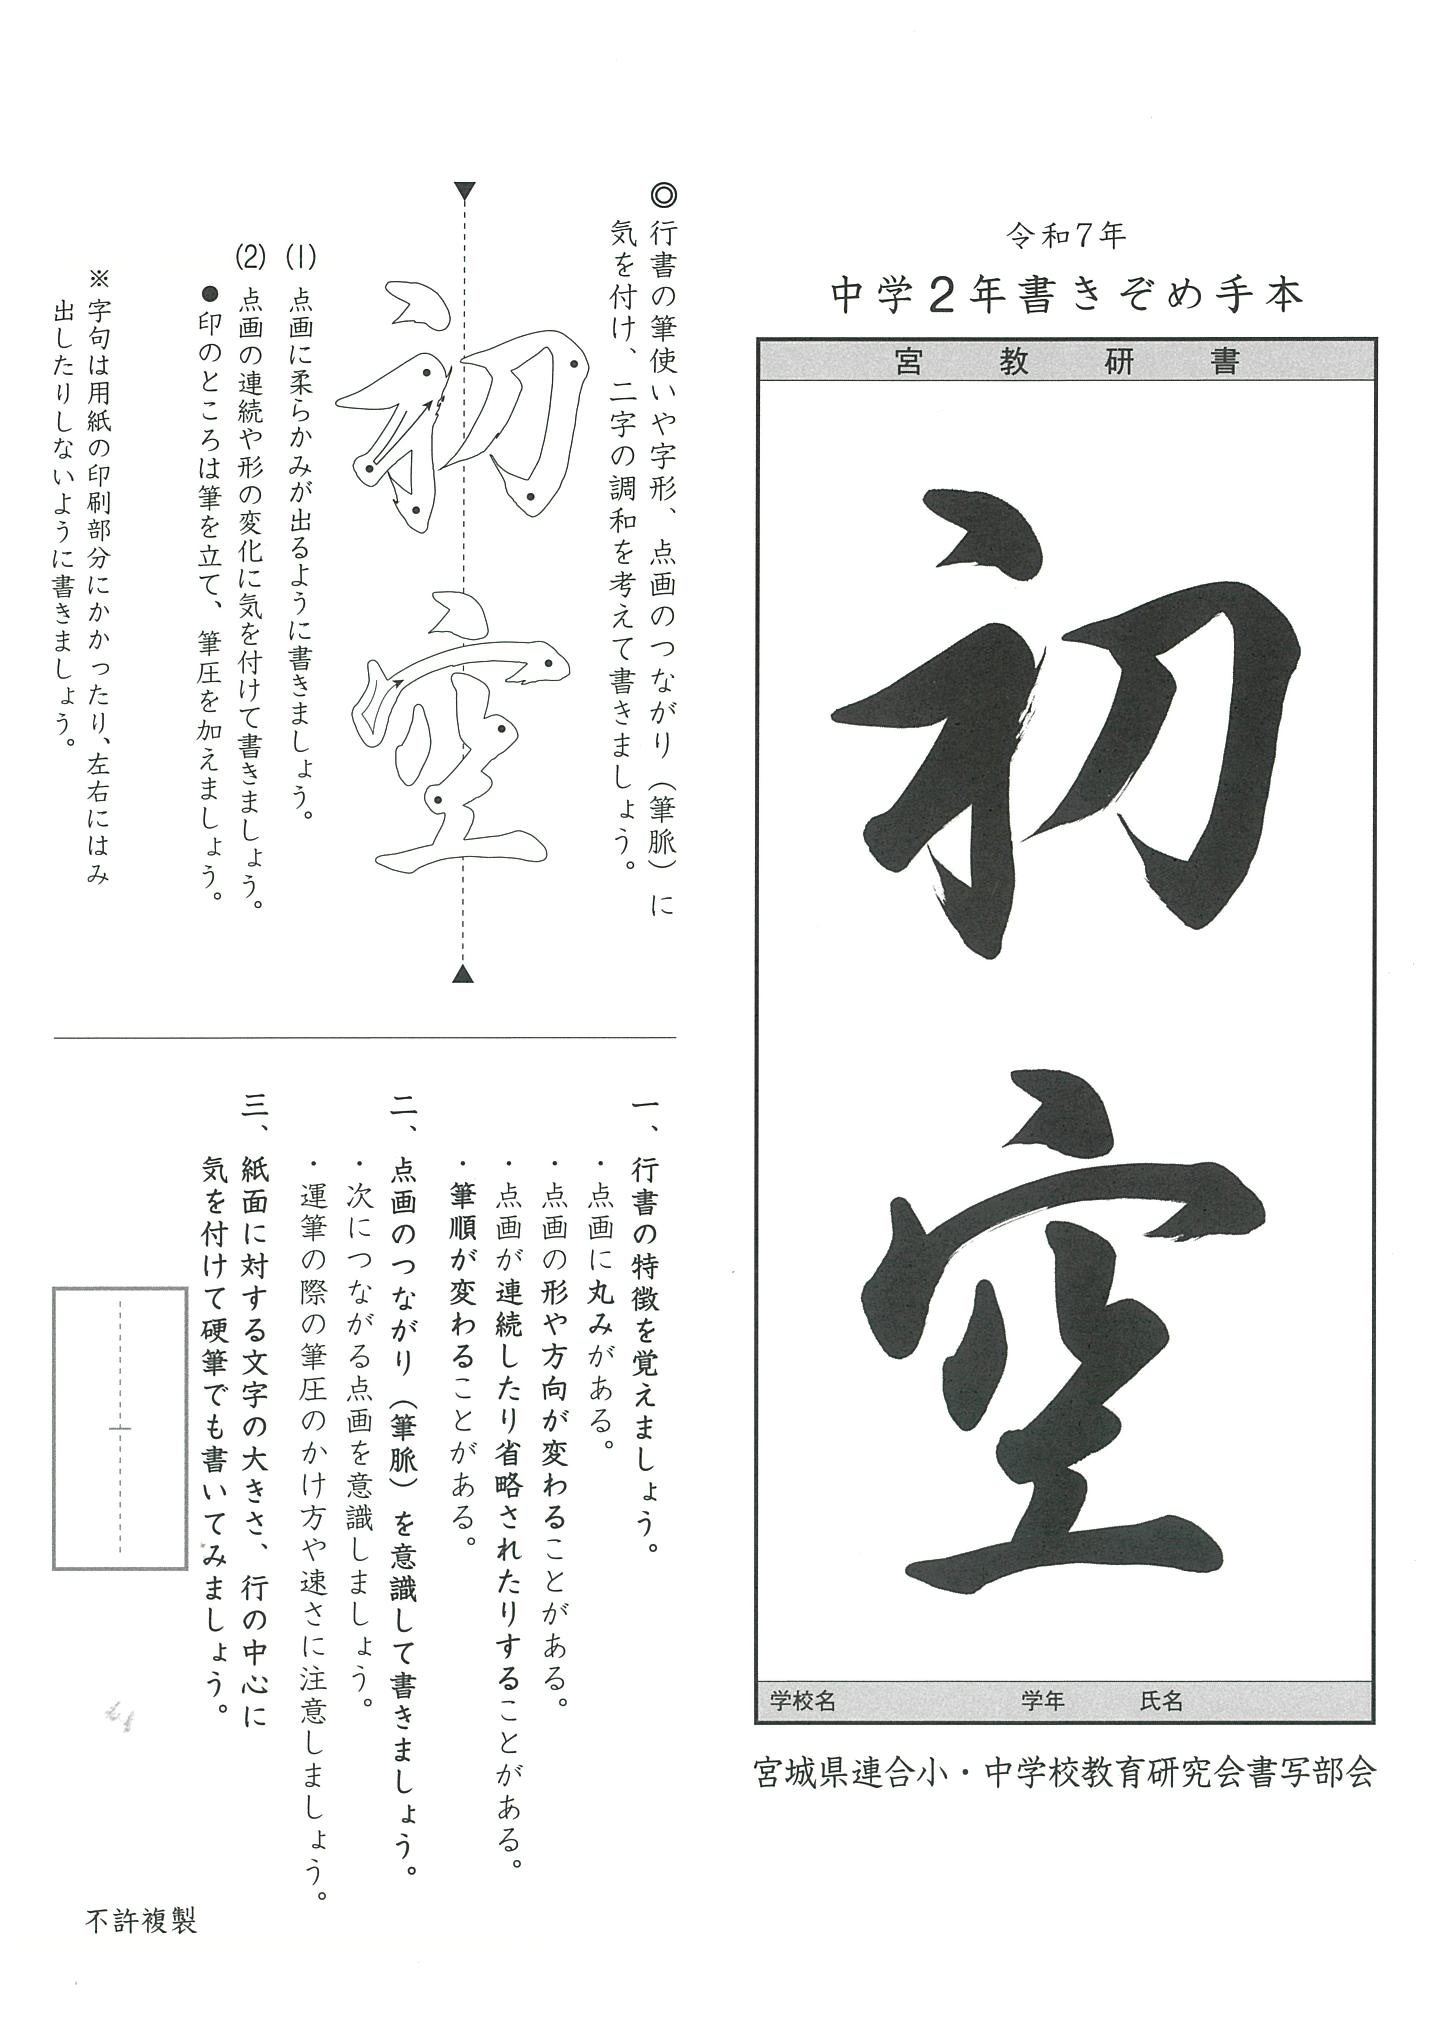 令和7年
中学2年書きぞめ手本
宮教研書
初空
学校名 学年 氏名
宮城県連合小・中学校教育研究会書写部会
◎行書の筆使いや字形、点画のつながり（筆脈）に
気を付け、二字の調和を考えて書きましょう。
初空
(1) 点画に柔らかみが出るように書きましょう。
(2) 点画の連続や形の変化に気を付けて書きましょう。
●印のところは筆を立て、筆圧を加えましょう。
※字句は用紙の印刷部分にかかったり、左右にはみ
出したりしないように書きましょう。
一、行書の特徴を覚えましょう。
・点画に丸みがある。
・点画の形や方向が変わることがある。
・点画が連続したり省略されたりすることがある。
・筆順が変わることがある。
二、点画のつながり（筆脈）を意識して書きましょう。
・次につながる点画を意識しましょう。
・運筆の際の筆圧のかけ方や速さに注意しましょう。
三、紙面に対する文字の大きさ、行の中心に
気を付けて硬筆でも書いてみましょう。
不許複製